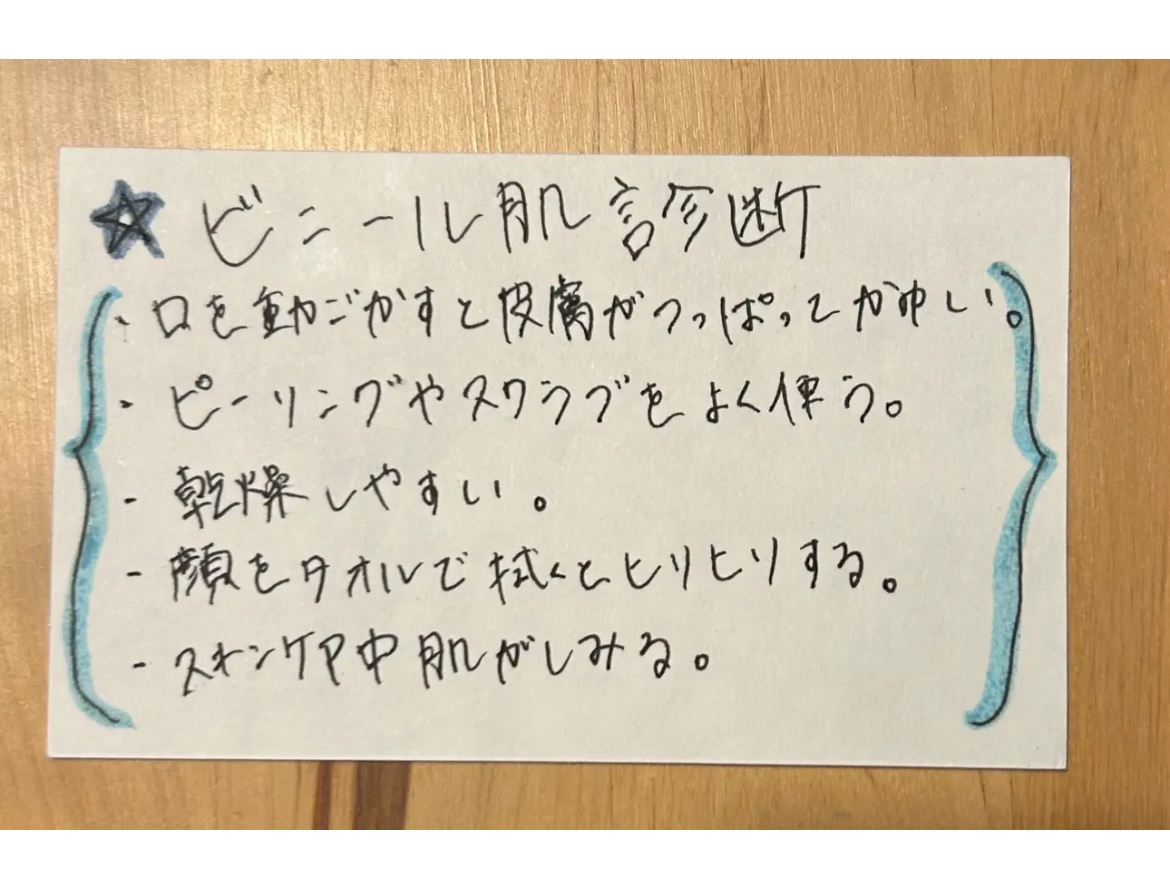 ☆ ビニール肌診断
・口を動ごかすと皮膚がつっぱってかゆい。
・ピーリングやスクラブをよく使う。
- 乾燥しやすい。
- 顔をタオルで拭くとヒリヒリする。
- スキンケア中肌がしみる。